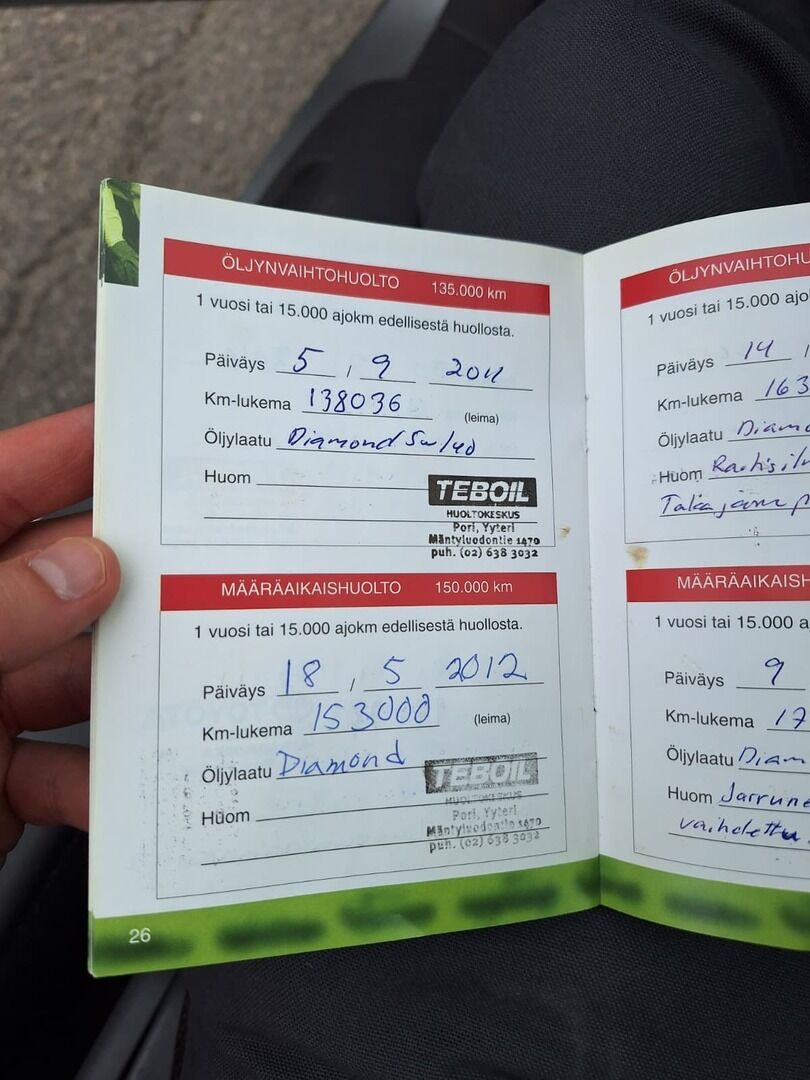 ÖLJYNVAIHTOHUOLTO 135.000 km
1 vuosi tai 15.000 ajokm edellisestä huollosta.
Päiväys 5 / 9 2011
Km-lukema 138036 (leima)
Öljylaatu Diamond 5w/40
Huom
TEBOIL
HUOLTOKESKUS
Pori, Yyteri
Mäntyluodontie 1470
puh. (02) 638 3032
MÄÄRÄAIKAISHUOLTO 150.000 km
1 vuosi tai 15.000 ajokm edellisestä huollosta.
Päiväys 18 / 5 2012
Km-lukema 153000 (leima)
Öljylaatu Diamond
Huom
TEBOIL
HUOLTOKESKUS
Pori, Yyteri
Mäntyluodontie 1470
puh. (02) 638 3032
26
ÖLJYNVAIHTOHU
1 vuosi tai 15.000 ajo
Päiväys 14 /
Km-lukema 163
Öljylaatu Diamo
Huom
MÄÄRÄAIKAISH
1 vuosi tai 15.000 a
Päiväys 9
Km-lukema 17
Öljylaatu Diam
Huom Jarrune
vaihdettu